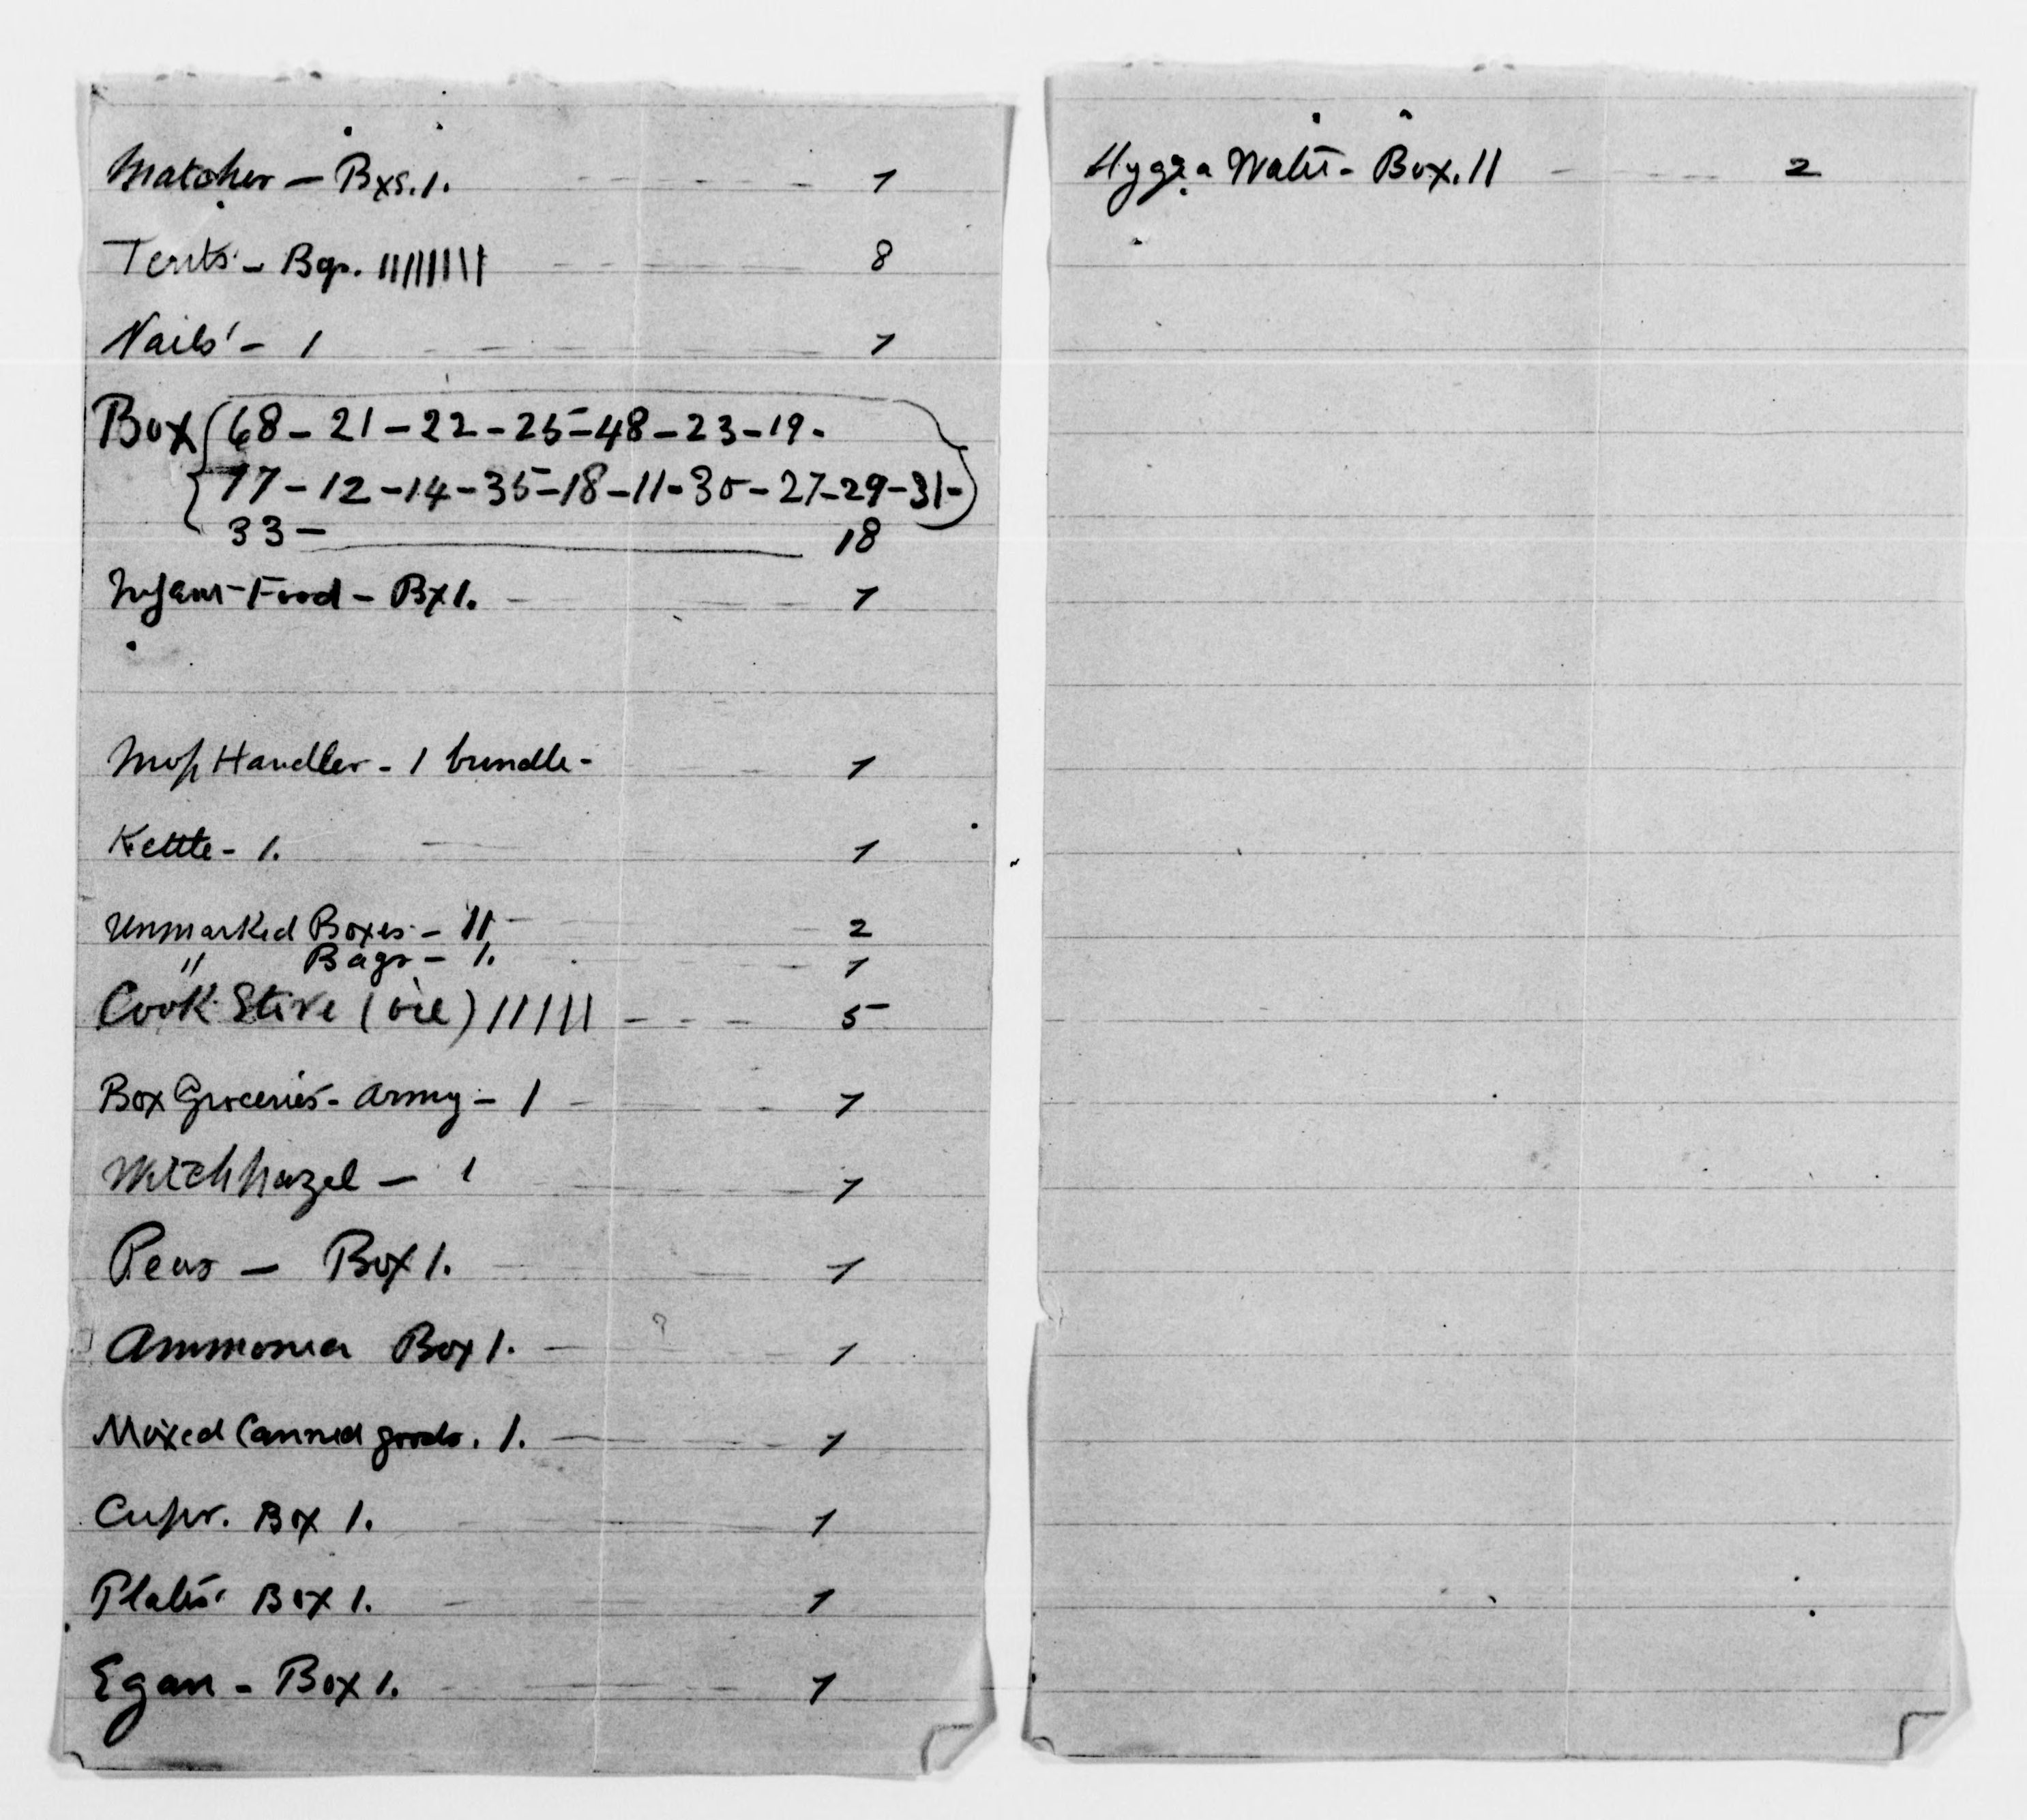 Matches – Bxs. 1. - - - - 1
Tents – Bgs. |||||||| - - - - 8
Nails – 1 - - - - 1
Box (68 – 21 – 22 – 25 – 48 – 23 – 19 -
77 – 12 – 14 – 35 – 18 – 11 – 30 – 27 – 29 – 31 -
33 – 18
Infant Food – Bx 1. - - - 1
Mop Handles – 1 bundle - - - 1
Kettle – 1. - 1
Unmarked Boxes – || - - 2
" Bags – 1. - - - 1
Cook Stove (oil) ||||| - - - 5
Box Groceries – Army – 1 - - - 1
Witchhazel – 1 - - - 1
Peas – Box 1. - - - 1
Ammonia Box 1. - - - 1
Mixed Canned goods. 1. - - - 1
Cups. Box 1. - - - 1
Plates Box 1. - - - 1
Egan – Box 1. - - - 1
Water – Box. || - - - 2